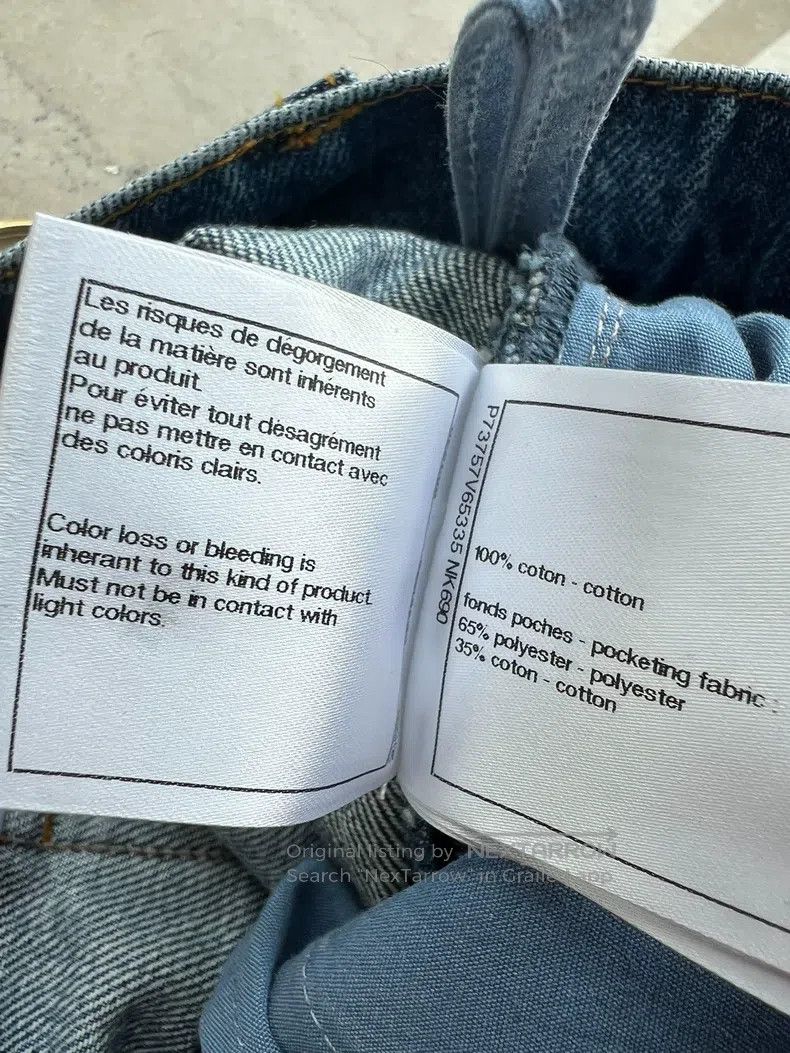 Les risques de dégorgement
de la matière sont inhérents
au produit.
Pour éviter tout désagrément
ne pas mettre en contact avec
des coloris clairs.
Color loss or bleeding is
inherant to this kind of product.
Must not be in contact with
light colors.
P73757V65335 NK690
100% coton - cotton
fonds poches - pocketing fabric :
65% polyester - polyester
35% coton - cotton
Original listing by NEXTARROW
Search "NexTarrow" in Grailed app